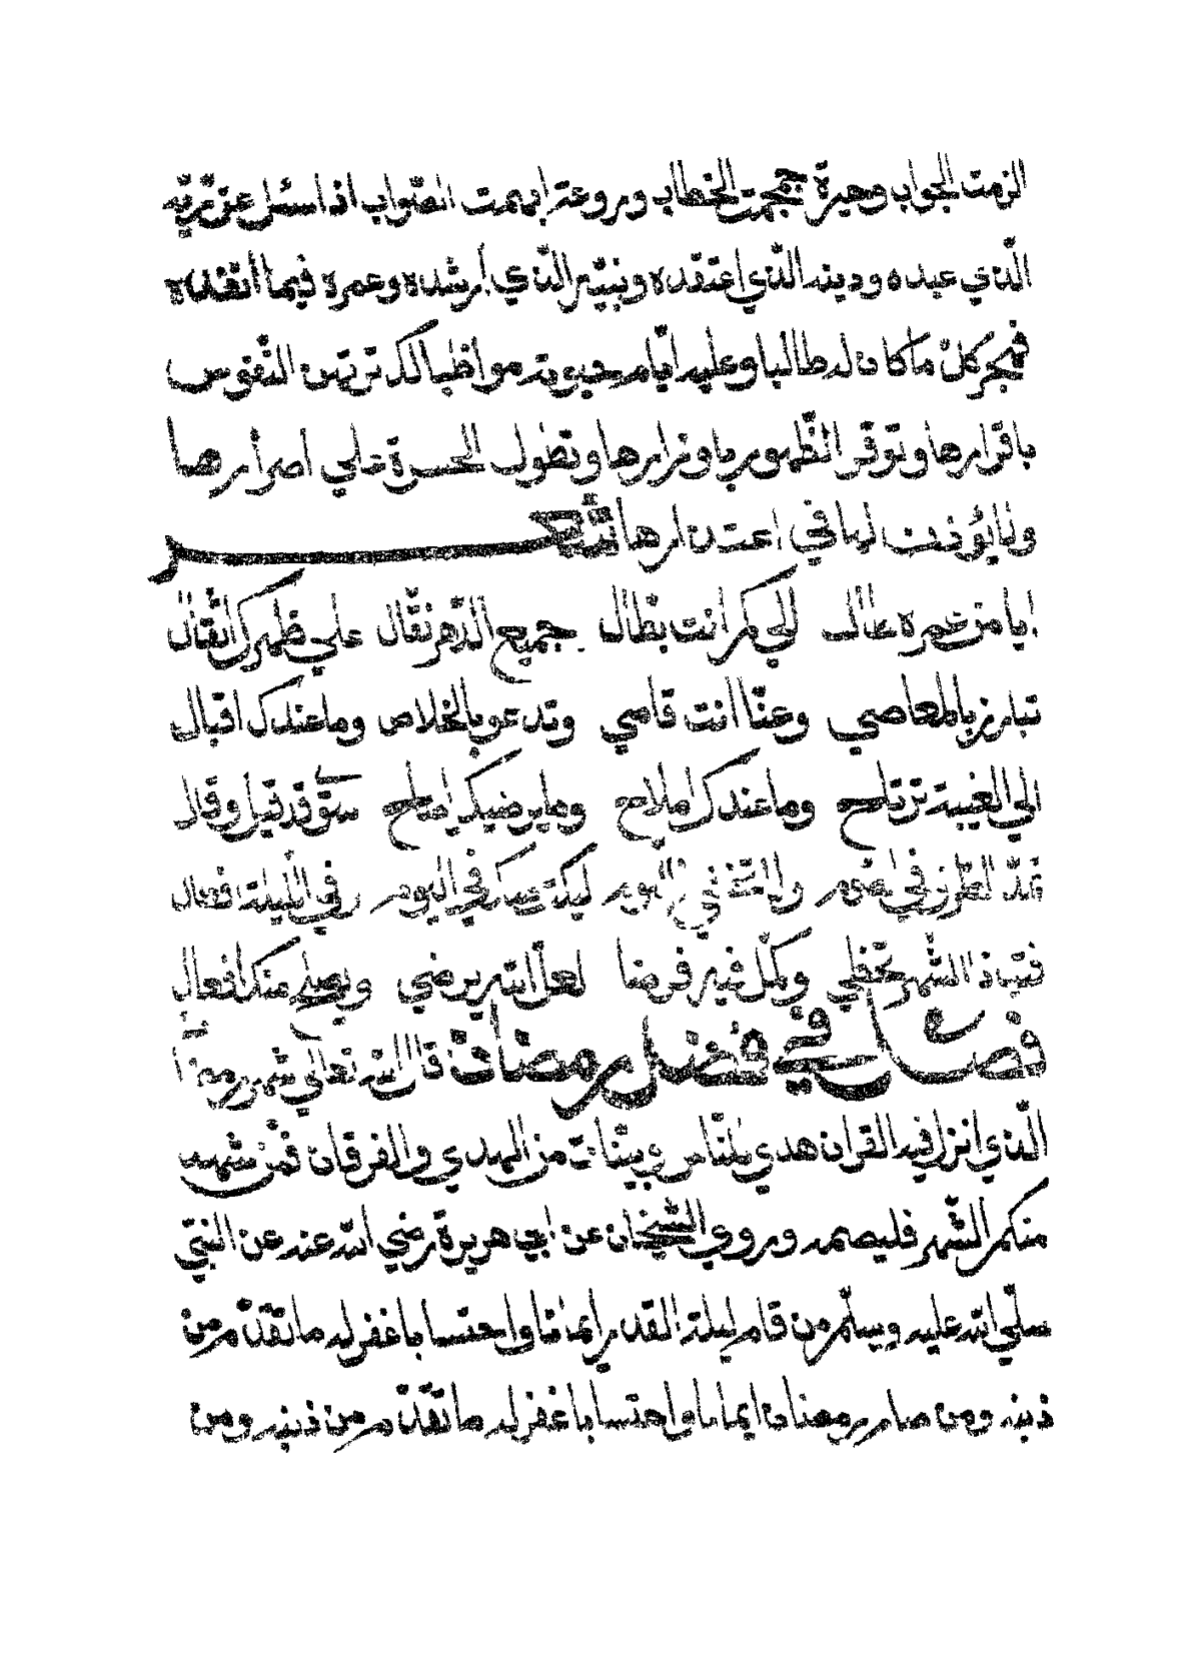 الزمت الجواب وحيرة جمجمت الخطاب وروعة ابهمت الصواب اذا سئل عن ربه
الذي عبده ودينه الذي اعتقده ونبيه الذي ارشده وعمره فيما انفده
فيجد كل ما كان له طالبا وعليه ايام حيوته مواظبا لك ترتهن النفوس
باقرارها وتوقر الظهور باوزارها وتطول الحسرة علي اصرارها
ولا يؤذن لها في اعتذارها شعر
ايا من عمره طال الي كم انت بطال جميع الدهر نقال علي ظهرك اثقال
تبارز بالمعاصي وعنا انت قاصي وتدعو بالخلاص وما عندك اقبال
الي الغيبة ترتاح وما عندك املاح وما يرضيك اصلاح سوي قد قيل وقال
تمد الطرف في الصوم ولا تخشي اللوم ليكتسبك في اليوم وفي الليلة افعال
فتب ذا الشهر تحظي وكمل فيه فرضا لعل الله يرضي ويصلح منك افعال
فصل في فضل رمضان قال الله تعالي شهر رمضان
الذي انزل فيه القران هدي للناس وبينات من الهدي والفرقان فمن شهد
منكم الشهر فليصمه وروي الشيخان عن ابي هريرة رضي الله عنه عن النبي
صلي الله عليه وسلم من قام ليلة القدر ايمانا واحتسابا غفر له ما تقدم من
ذنبه ومن صام رمضان ايمانا واحتسابا غفر له ما تقدم من ذنبه ومن